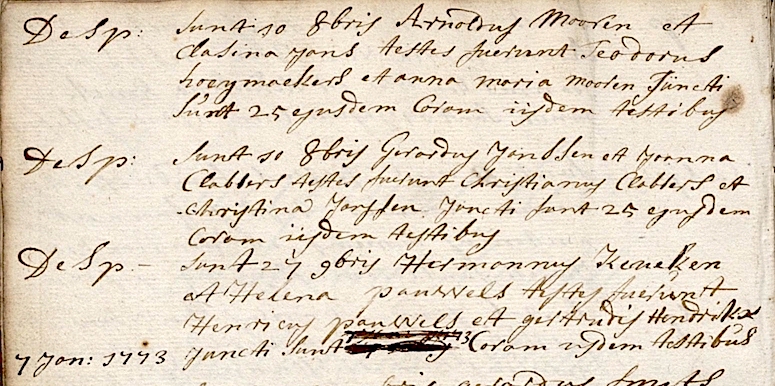 DeSp: Sunt 10 8bris Arnoldus Mooren et
Clasina Jans testes fuerunt Teodorus
hoeymaekers et anna maria mooren Juncti
sunt 25 ejusdem Coram iisdem testibus
DeSp: Sunt 10 8bris Gerardus Janssen et Joanna
Clabbers testes fuerunt Christianus Clabbers et
Christina Janssen Juncti sunt 25 ejusdem
Coram iisdem testibus
DeSp - Sunt 27 9bris Hermannus Keuelken
et Helena pauwels testes fuerunt
Henricus pauwels et gertrudis Hendrikx
7 Jan: 1773 Juncti Sunt Coram iisdem testibus
bris gerardus Smits